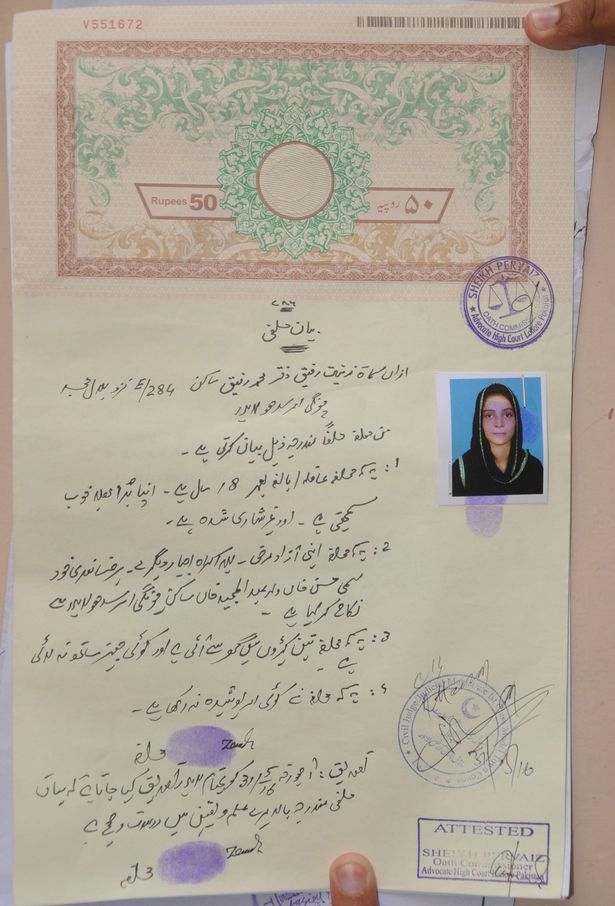 V551672
Rupees 50
۵۰ روپیہ
SHEIKH PERVAIZ
OATH COMMISSIONER
Advocate High Court Lahore Pakistan
۷۸۶
بیان حلفی
ازاں مسماۃ زینت رفیق دختر محمد رفیق ساکن 284/E نزد بلال مسجد
چونگی امرسدھو لاہور
من حلفاً مندرجہ ذیل بیان کرتی ہے۔
1: یہ کہ محلفہ عاقلہ / بالغہ بعمر 18 سال ہے۔ اپنا برا بھلا خوب
سمجھتی ہے۔ اور غیر شادی شدہ ہے۔
2: یہ کہ محلفہ اپنی آزاد مرضی۔ بلا اکراہ اجبار دیگرے۔ برضامندی خود
مسمی حسن خاں ولد عبدالمجید خاں ساکن چونگی امرسدھو لاہور سے
نکاح کر لیا ہے۔
3: یہ کہ محلفہ تین کپڑوں میں گھر سے آئی ہے اور کوئی چیز ساتھ نہ لائی
ہے
4: یہ کہ محلفہ نے کوئی امر پوشیدہ نہ رکھا ہے۔
محلفہ
تصدیق: آج مورخہ کو بمقام لاہور تصدیق کیا جاتا ہے کہ بیان
حلفی مندرجہ بالا میرے علم و یقین میں درست و صحیح ہے
محلفہ
Civil Judge/Judicial Magistrate
ATTESTED
SHEIKH PERVAIZ
Oath Commissioner
Advocate High Court Lahore Pakistan